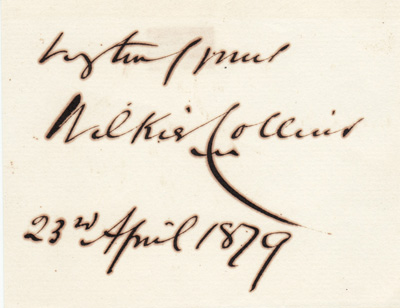 Very truly yours
Wilkie Collins
23rd April 1879